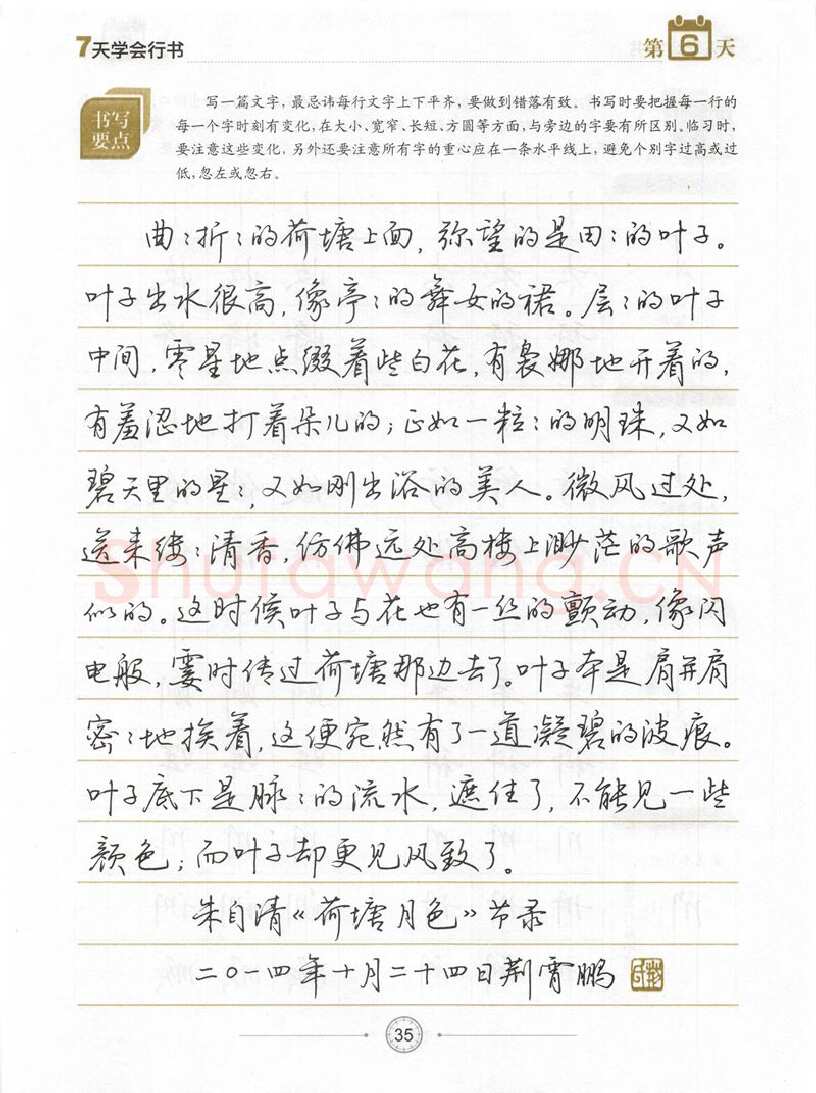 7天学会行书
第6天
书写
要点
写一篇文字，最忌讳每行文字上下平齐，要做到错落有致。书写时要把握每一行的
每一个字时刻有变化，在大小、宽窄、长短、方圆等方面，与旁边的字要有所区别。临习时，
要注意这些变化，另外还要注意所有字的重心应在一条水平线上，避免个别字过高或过
低，忽左或忽右。
曲：折：的荷塘上面，弥望的是田：的叶子。
叶子出水很高，像亭：的舞女的裙。层：的叶子
中间，零星地点缀着些白花，有袅娜地开着的，
有羞涩地打着朵儿的；正如一粒：的明珠，又如
碧天里的星：，又如刚出浴的美人。微风过处，
送来缕：清香，仿佛远处高楼上渺茫的歌声
似的。这时候叶子与花也有一丝的颤动，像闪
电般，霎时传过荷塘那边去了。叶子本是肩并肩
密：地挨着，这便宛然有了一道凝碧的波痕。
叶子底下是脉：的流水，遮住了，不能见一些
颜色；而叶子却更见风致了。
朱自清《荷塘月色》节录
二〇一四年十月二十四日荆霄鹏
35
Shufawang.CN